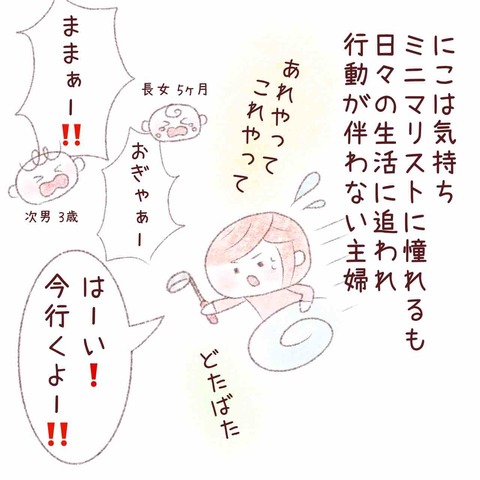 にこは気持ち
ミニマリストに憧れるも
日々の生活に追われ
行動が伴わない主婦
あれやって
これやって
長女 5ヶ月
おぎゃあー
ままぁー‼
次男 3歳
はーい❗
今行くよー‼
どたばた